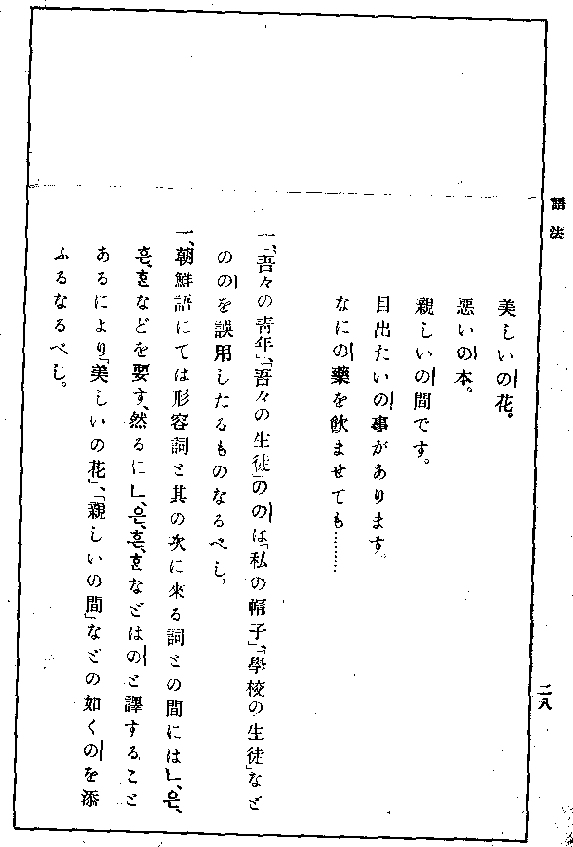 語法
美しいの花。
悪いの本。
親しいの間です。
目出たいの事があります。
なにの藥を飮ませても………
一、「吾々の青年」、「吾々の生徒」ののは「私の帽子」、「學校の生徒」など
ののを誤用したるものなるべし。
一、朝鮮語にては形容詞と其の次に來る詞との間にはㄴ、은、
흔、한などを要す、然るにㄴ、은、흔、한などはのと譯すること
あるにより「美しいの花」、「親しいの間」などの如くのを添
ふるなるべし。
二八